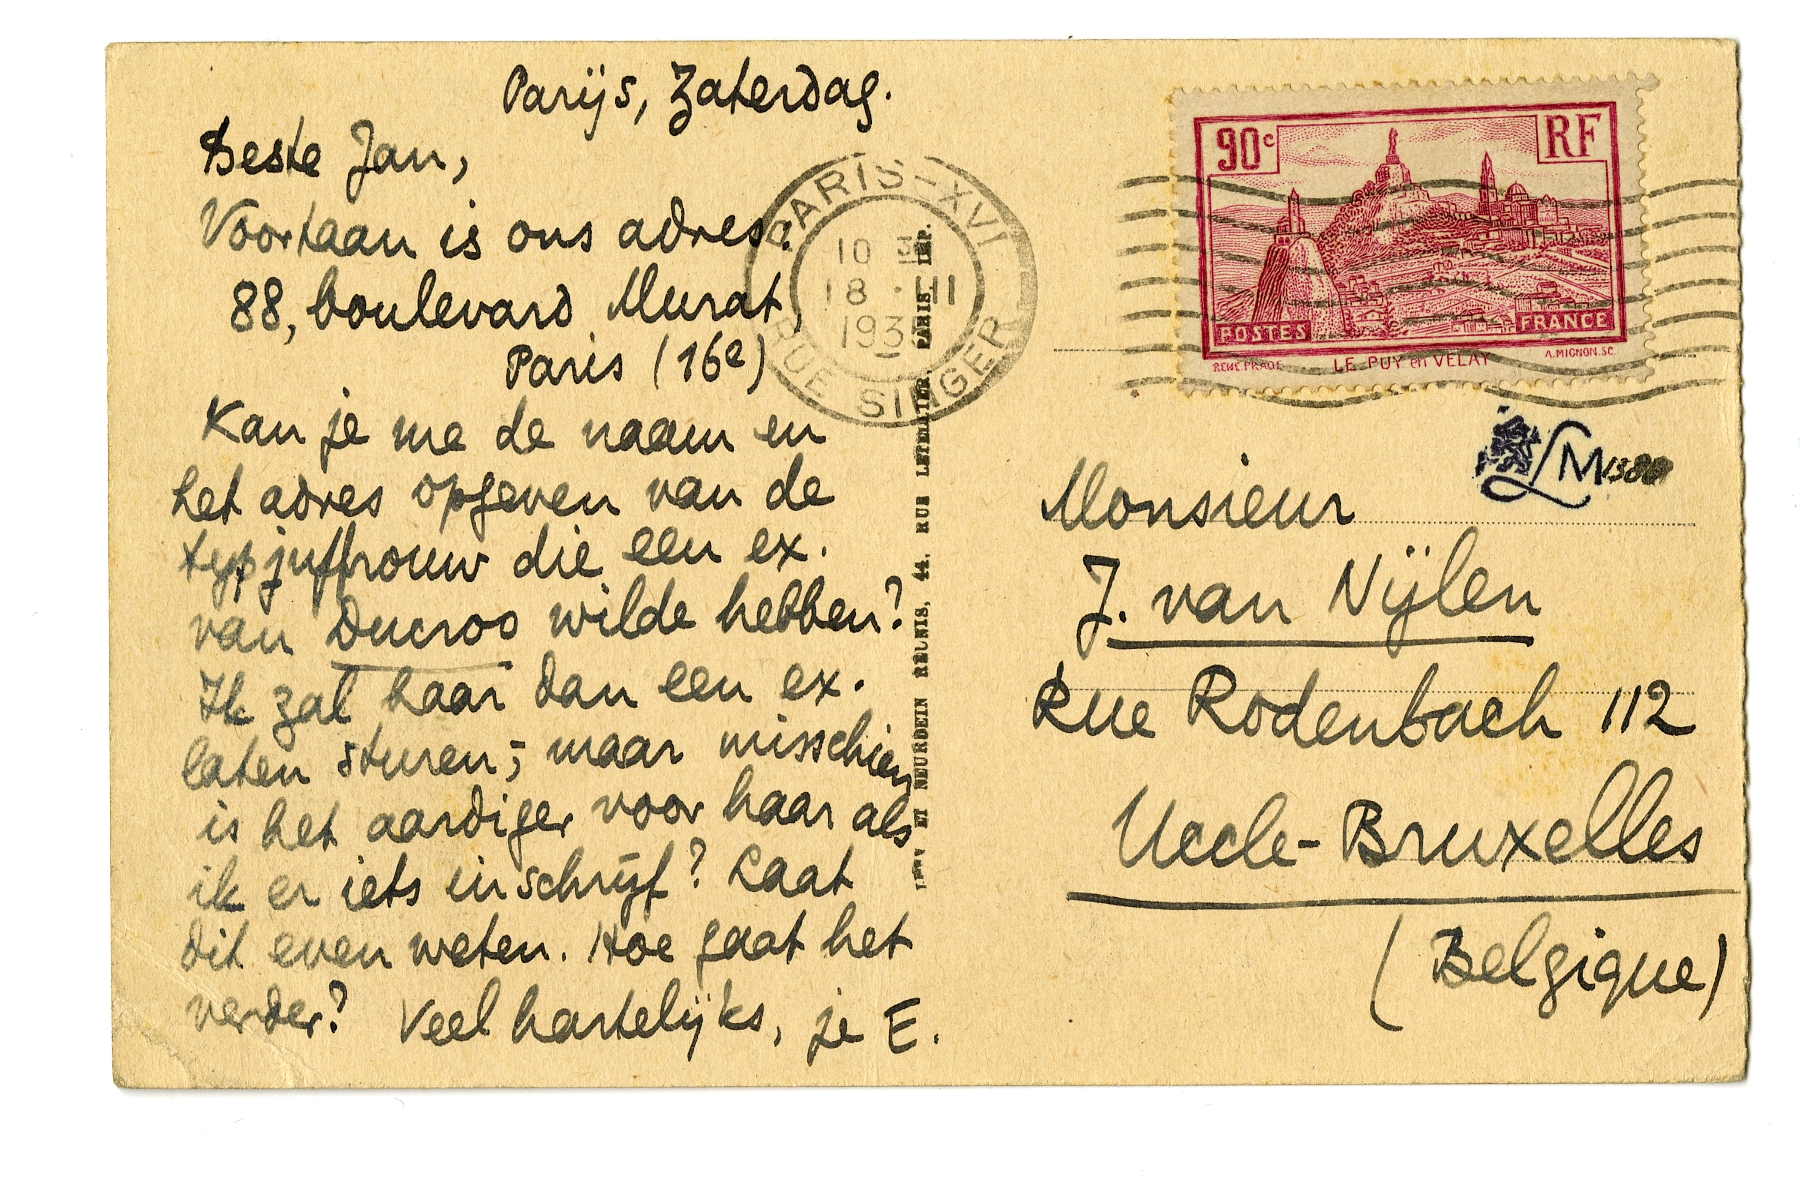 Parijs, Zaterdag.
Beste Jan,
Voortaan is ons adres:
88, boulevard Murat,
Paris (16e)
Kan je me de naam en
het adres opgeven van de
typjuffrouw die een ex.
van Ducroo wilde hebben?
Ik zal haar dan een ex.
laten sturen; maar misschien
is het aardiger voor haar als
ik er iets inschrijf? Laat
dit even weten. Hoe gaat het
verder? Veel hartelijks, je E.
PARIS-XVI
10 3
18 · III
193
RUE SINGER
ET NEURDEIN RÉUNIS, 44, RUE LETELLIER, PARIS, IMP.
90c
RF
POSTES
FRANCE
LE PUY en VELAY
A.MIGNON.SC.
LM
Monsieur
J. van Nijlen
Rue Rodenbach 112
Uccle-Bruxelles
(Belgique)